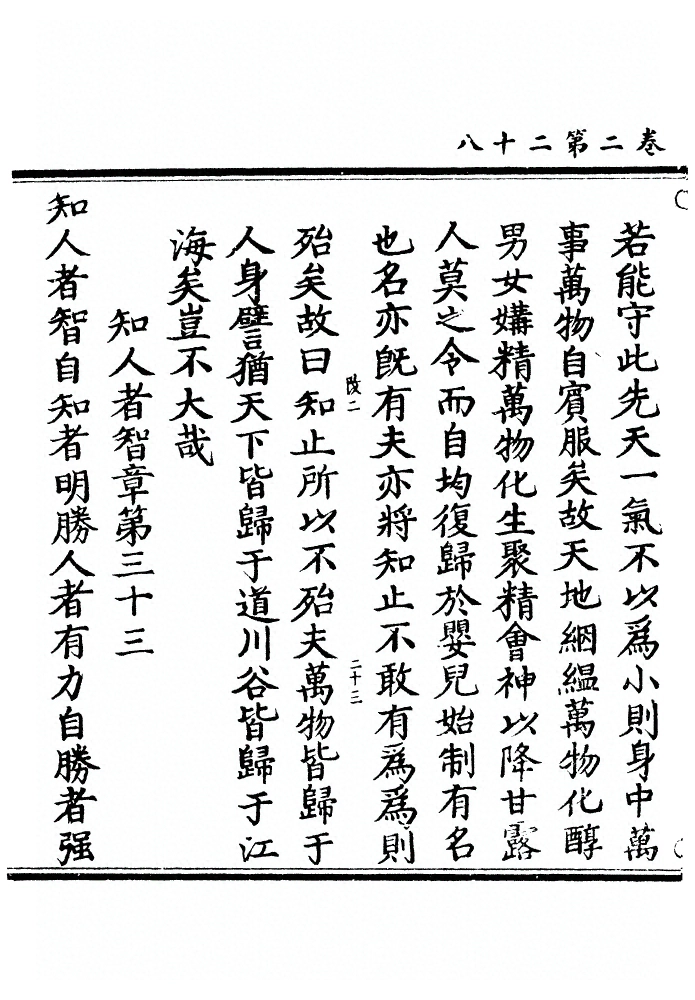 卷二第二十八
若能守此先天一氣不以爲小則身中萬
事萬物自賓服矣故天地絪縕萬物化醇
男女媾精萬物化生聚精會神以降甘露
人莫之令而自均復歸於嬰兒始制有名
也名亦旣有夫亦將知止不敢有爲爲則
改二
二十三
殆矣故曰知止所以不殆夫萬物皆歸于
人身譬猶天下皆歸于道川谷皆歸于江
海矣豈不大哉
知人者智章第三十三
知人者智自知者明勝人者有力自勝者强